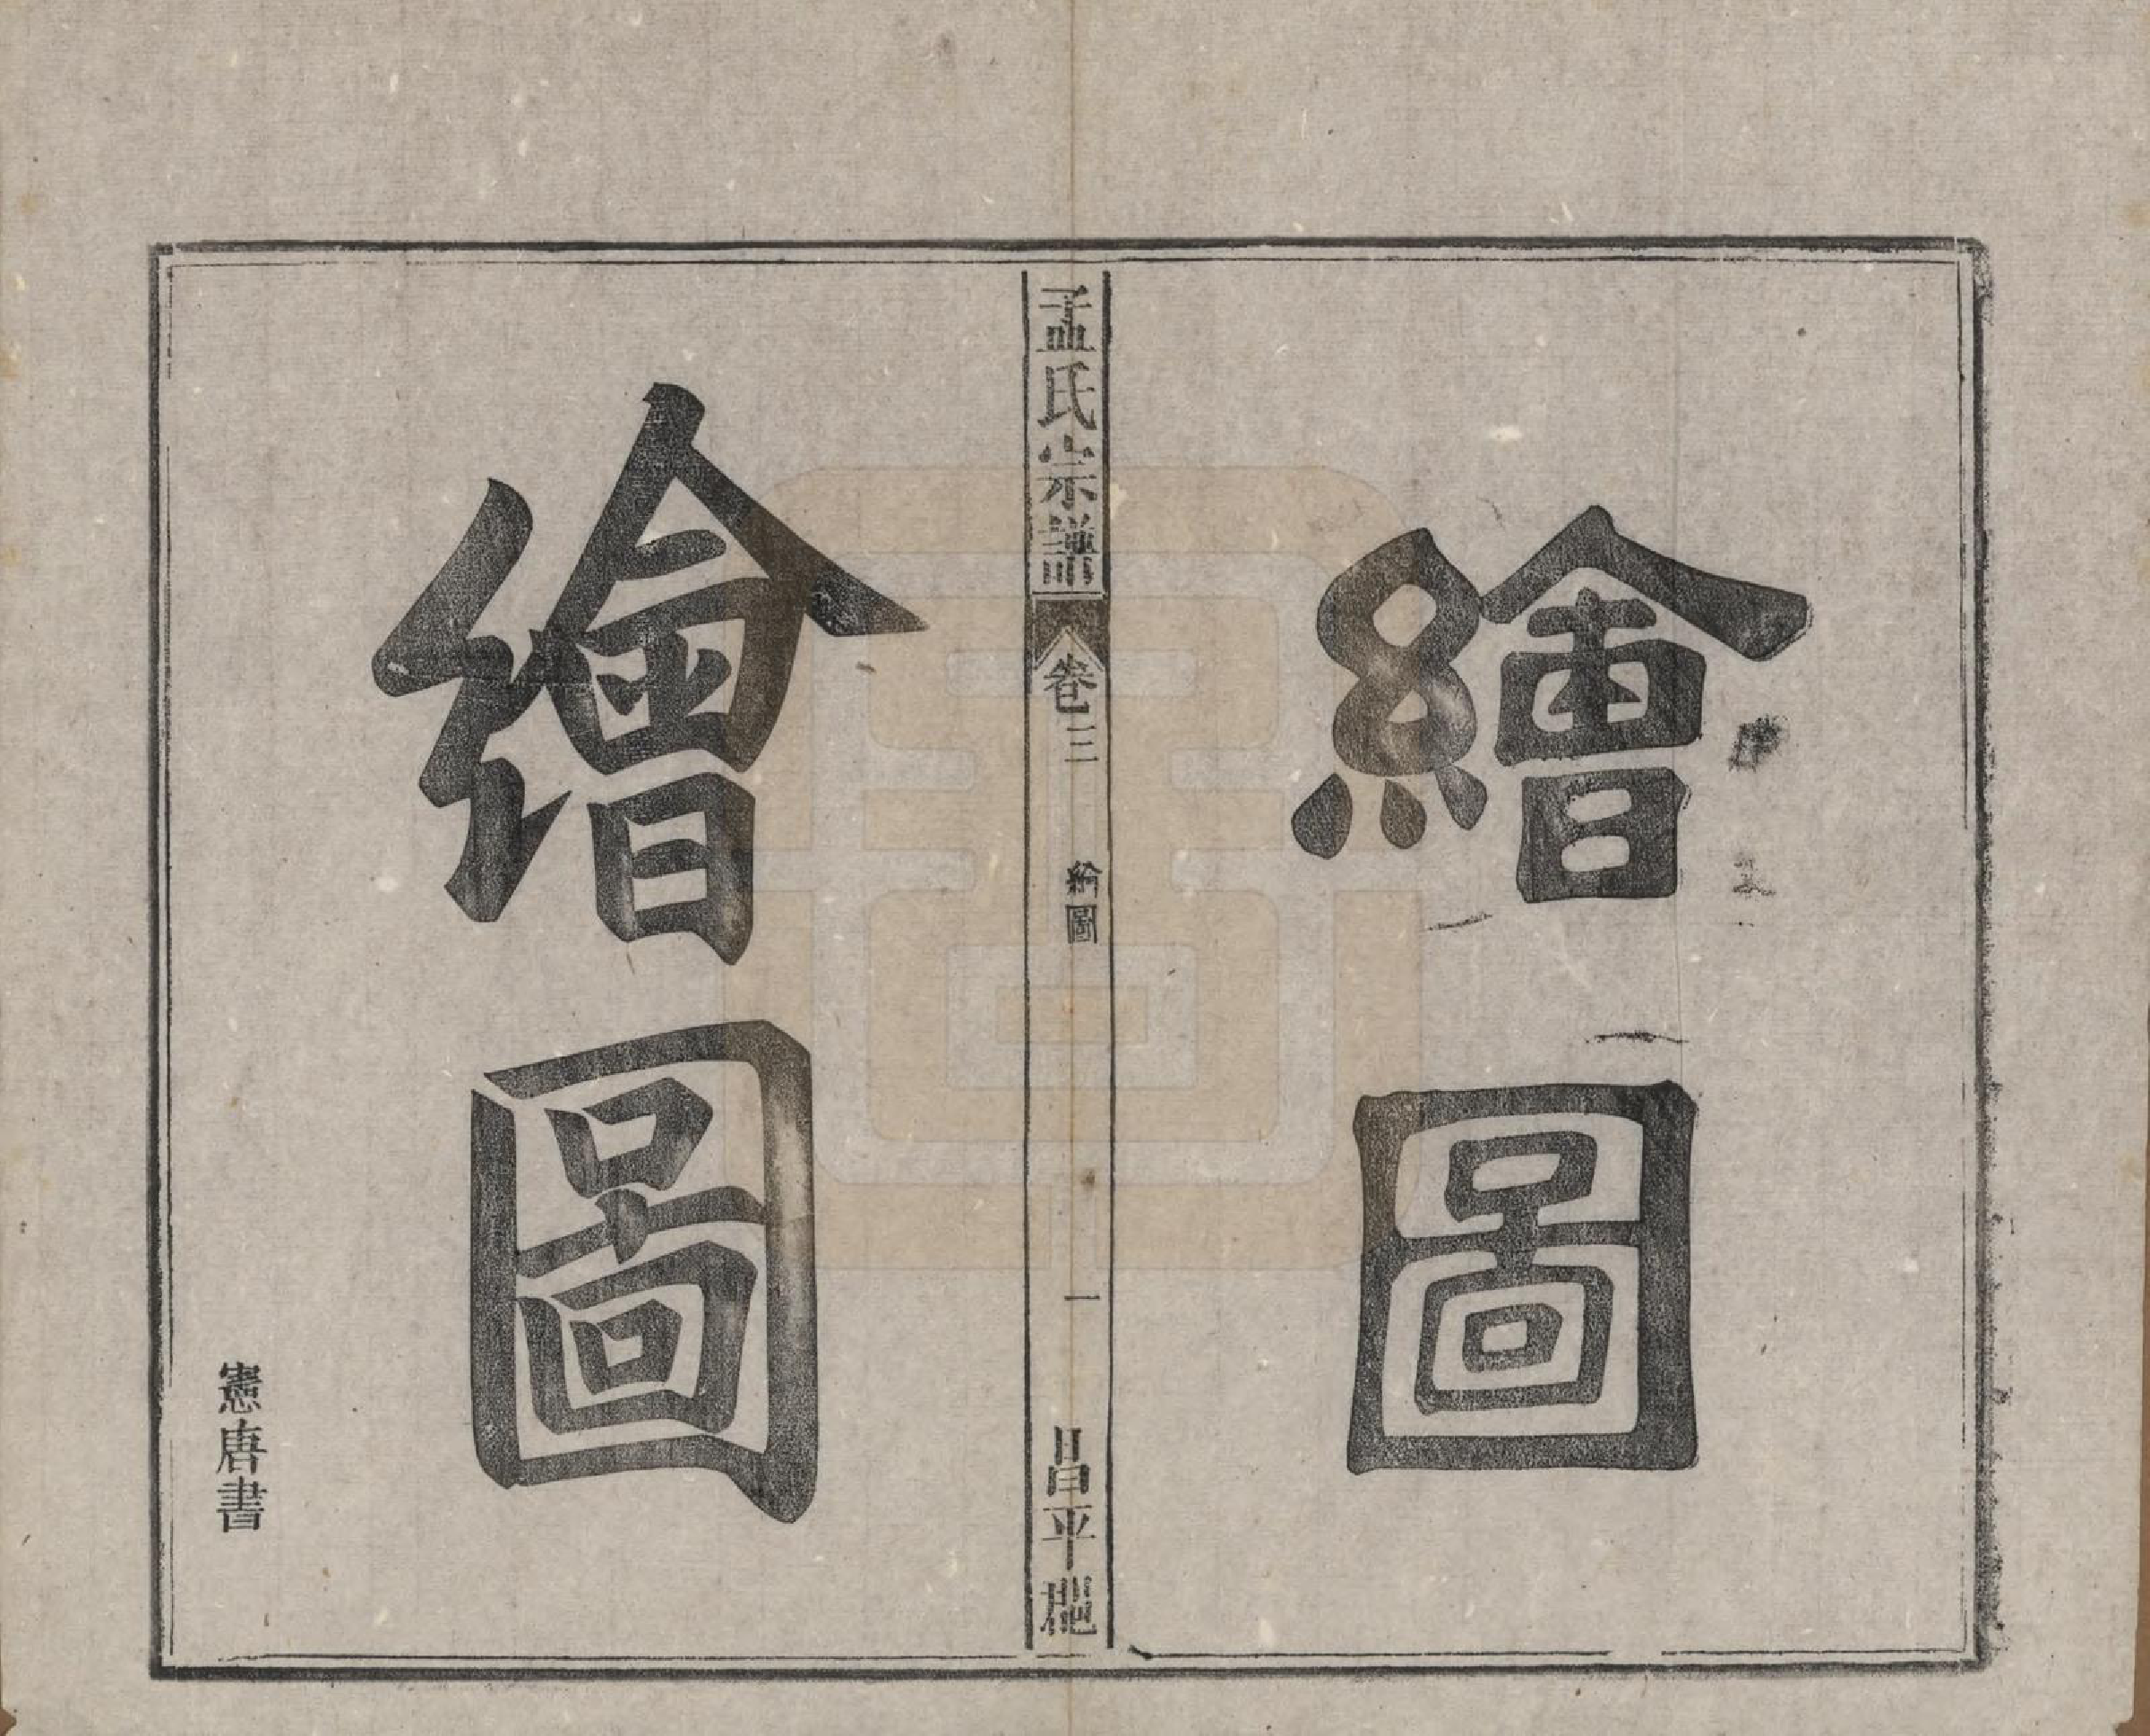 繪圖
孟氏宗譜
卷三
繪圖
一
昌平
繪圖
憲唐書